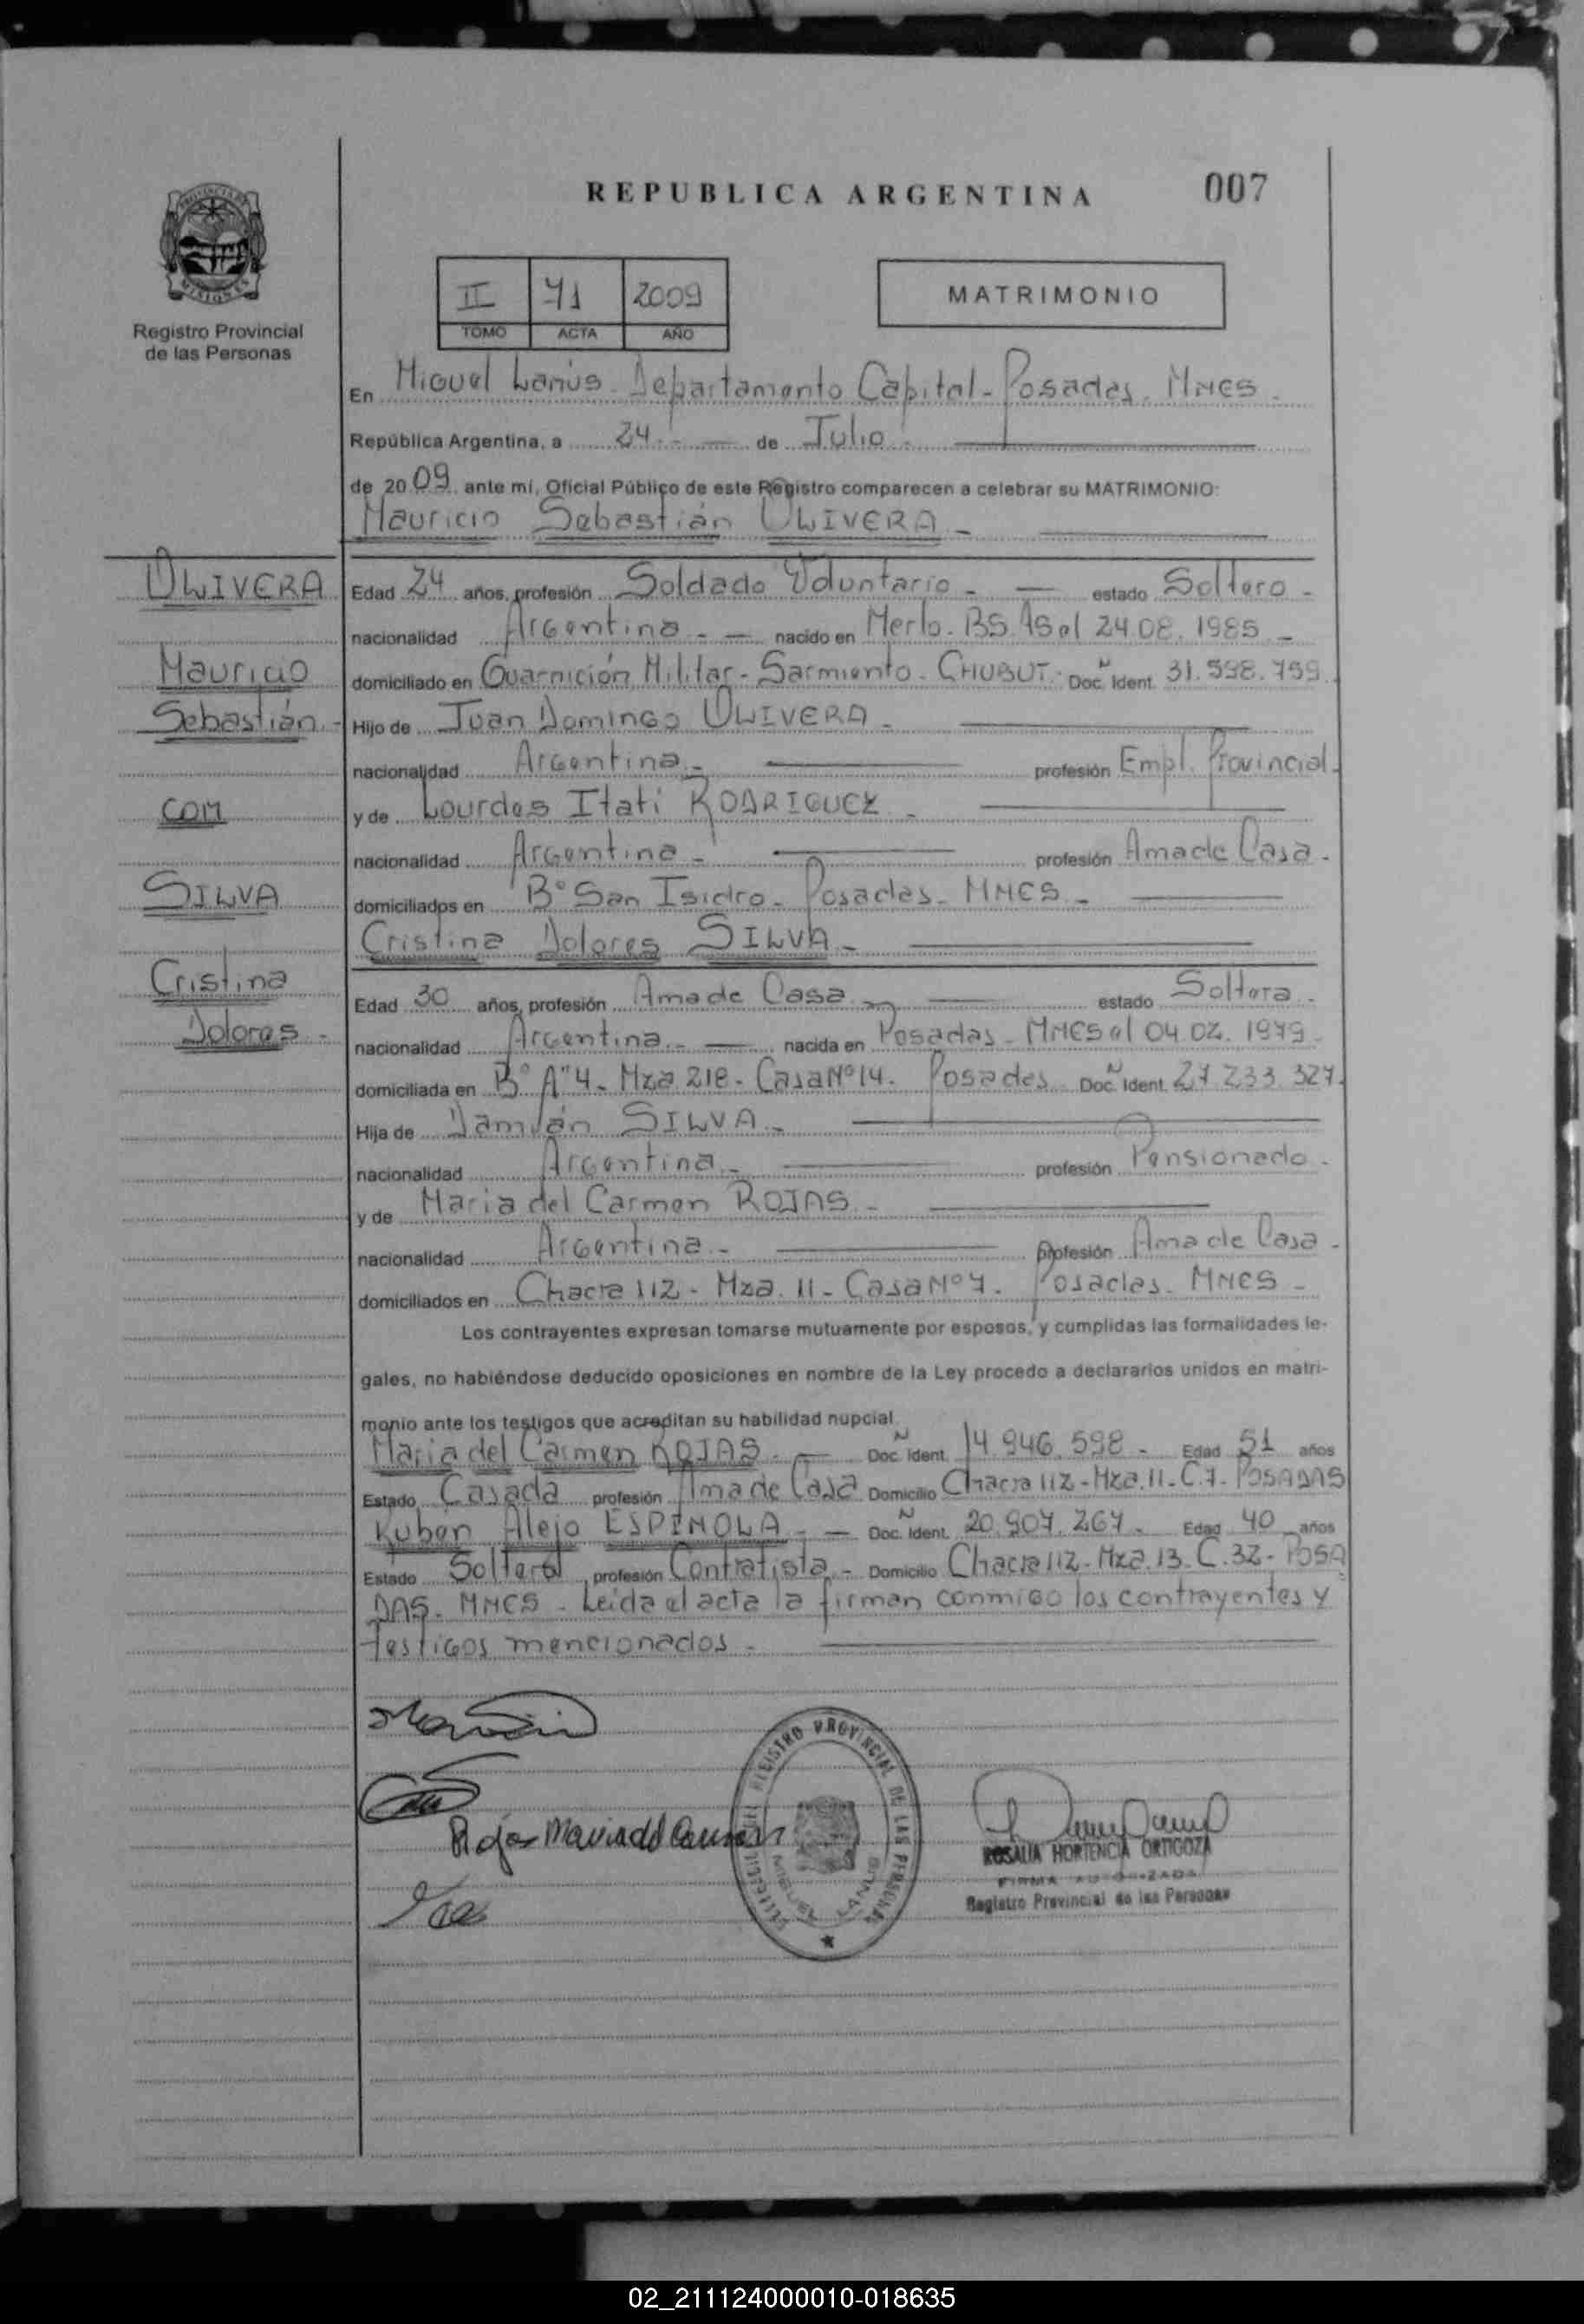 REPUBLICA ARGENTINA
007
PROVINCIA DE
MISIONES
Registro Provincial
de las Personas
II 71 2009
TOMO ACTA AÑO
MATRIMONIO
En Miguel Lanús. Departamento Capital - Posadas. Mnes.
República Argentina, a 24.- de Julio.
de 2009 ante mí, Oficial Público de este Registro comparecen a celebrar su MATRIMONIO:
Mauricio Sebastián OLIVERA.-
OLIVERA
Mauricio
Sebastián.-
con
SILVA
Cristina
Dolores.-
Edad 24 años, profesión Soldado Voluntario.- estado Soltero.-
nacionalidad Argentina.- nacido en Merlo. BS. AS el 24.08.1985.-
domiciliado en Guarnición Militar - Sarmiento - CHUBUT. Doc. N Ident. 31.598.759.
Hijo de Juan Domingo OLIVERA.-
nacionalidad Argentina.- profesión Empl. Provincial.
y de Lourdes Itatí RODRIGUEZ.-
nacionalidad Argentina.- profesión Ama de Casa.-
domiciliados en B° San Isidro - Posadas - Mnes.-
Cristina Dolores SILVA.-
Edad 30 años, profesión Ama de Casa.- estado Soltera.-
nacionalidad Argentina.- nacida en Posadas - Mnes el 04.02.1979.-
domiciliada en B° "A" 4 - Mza 218 - Casa N° 14. Posadas. Doc. N Ident. 27.233.327.
Hija de Damián SILVA.-
nacionalidad Argentina.- profesión Pensionado.-
y de Maria del Carmen ROJAS.-
nacionalidad Argentina.- profesión Ama de Casa.-
domiciliados en Chacra 112 - Mza. 11 - Casa N° 7. Posadas. Mnes.-
Los contrayentes expresan tomarse mutuamente por esposos, y cumplidas las formalidades le-
gales, no habiéndose deducido oposiciones en nombre de la Ley procedo a declararlos unidos en matri-
monio ante los testigos que acreditan su habilidad nupcial
Maria del Carmen ROJAS.- Doc. N Ident. 14.946.598.- Edad 51 años
Estado Casada profesión Ama de Casa Domicilio Chacra 112 - Mza. 11 - C. 7 - POSADAS
Rubén Alejo ESPINOLA.- Doc. N Ident. 20.907.267.- Edad 40 años
Estado Soltero profesión Contratista.- Domicilio Chacra 112 - Mza. 13. C. 32 - POSA
DAS. Mnes - Leída el acta la firman conmigo los contrayentes y
testigos mencionados.-
Rojas Maria del Carmen
REGISTRO PROVINCIAL DE LAS PERSONAS
MIGUEL LANUS
ROSALIA HORTENCIA ORTIGOZA
FIRMA AUTORIZADA
Registro Provincial de las Personas
02_211124000010-018635